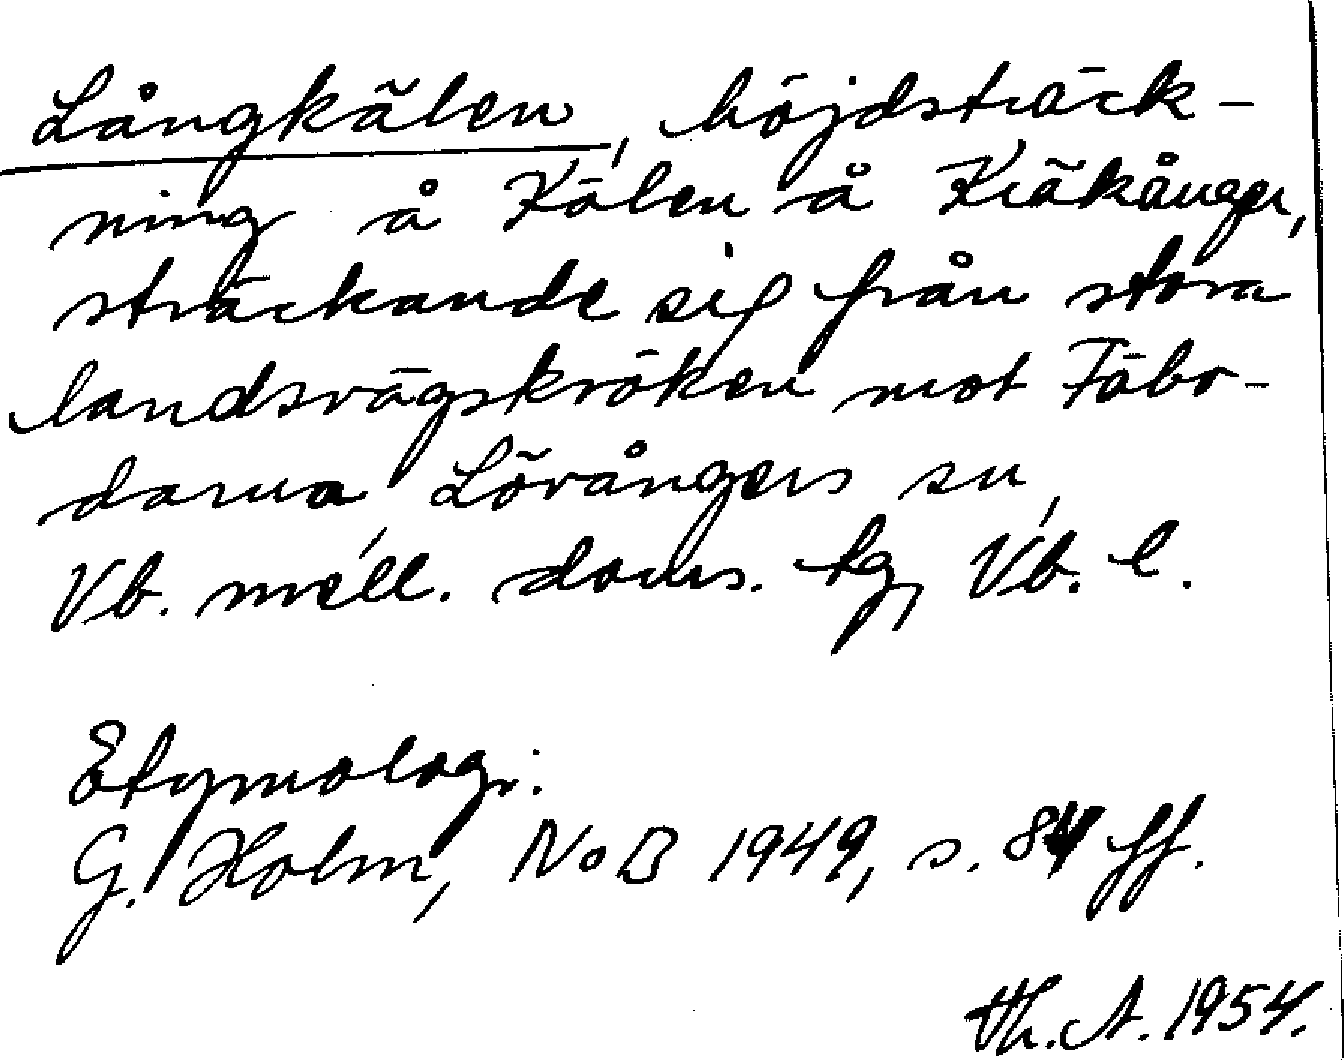 Långkälen, höjdsträck-
ning å Kälen å Kräkånger,
sträckande sig från stora
landsvägskröken mot Fäbo-
darna Lövångers sn,
Vb. mell. doms. tg, Vb. l.
Etymologi:
G. Holm, NoB 1949, s. 84 ff.
Th. A. 1954.